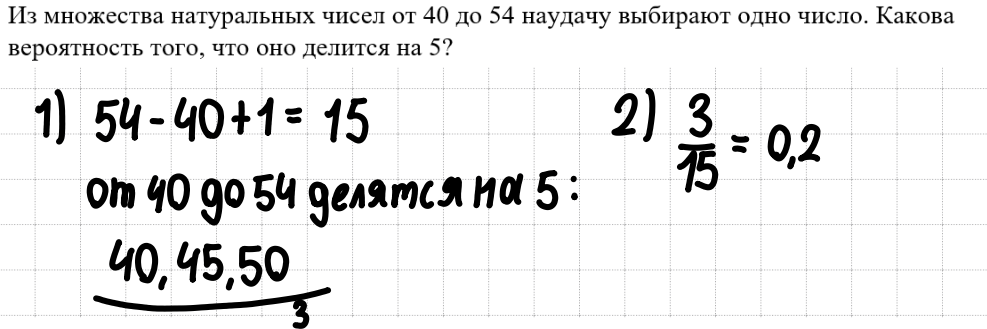 Из множества натуральных чисел от 40 до 54 наудачу выбирают одно число. Какова
вероятность того, что оно делится на 5?
1) 54-40+1= 15
от 40 до 54 делятся на 5:
40, 45, 50
3
2) 3/15 = 0,2